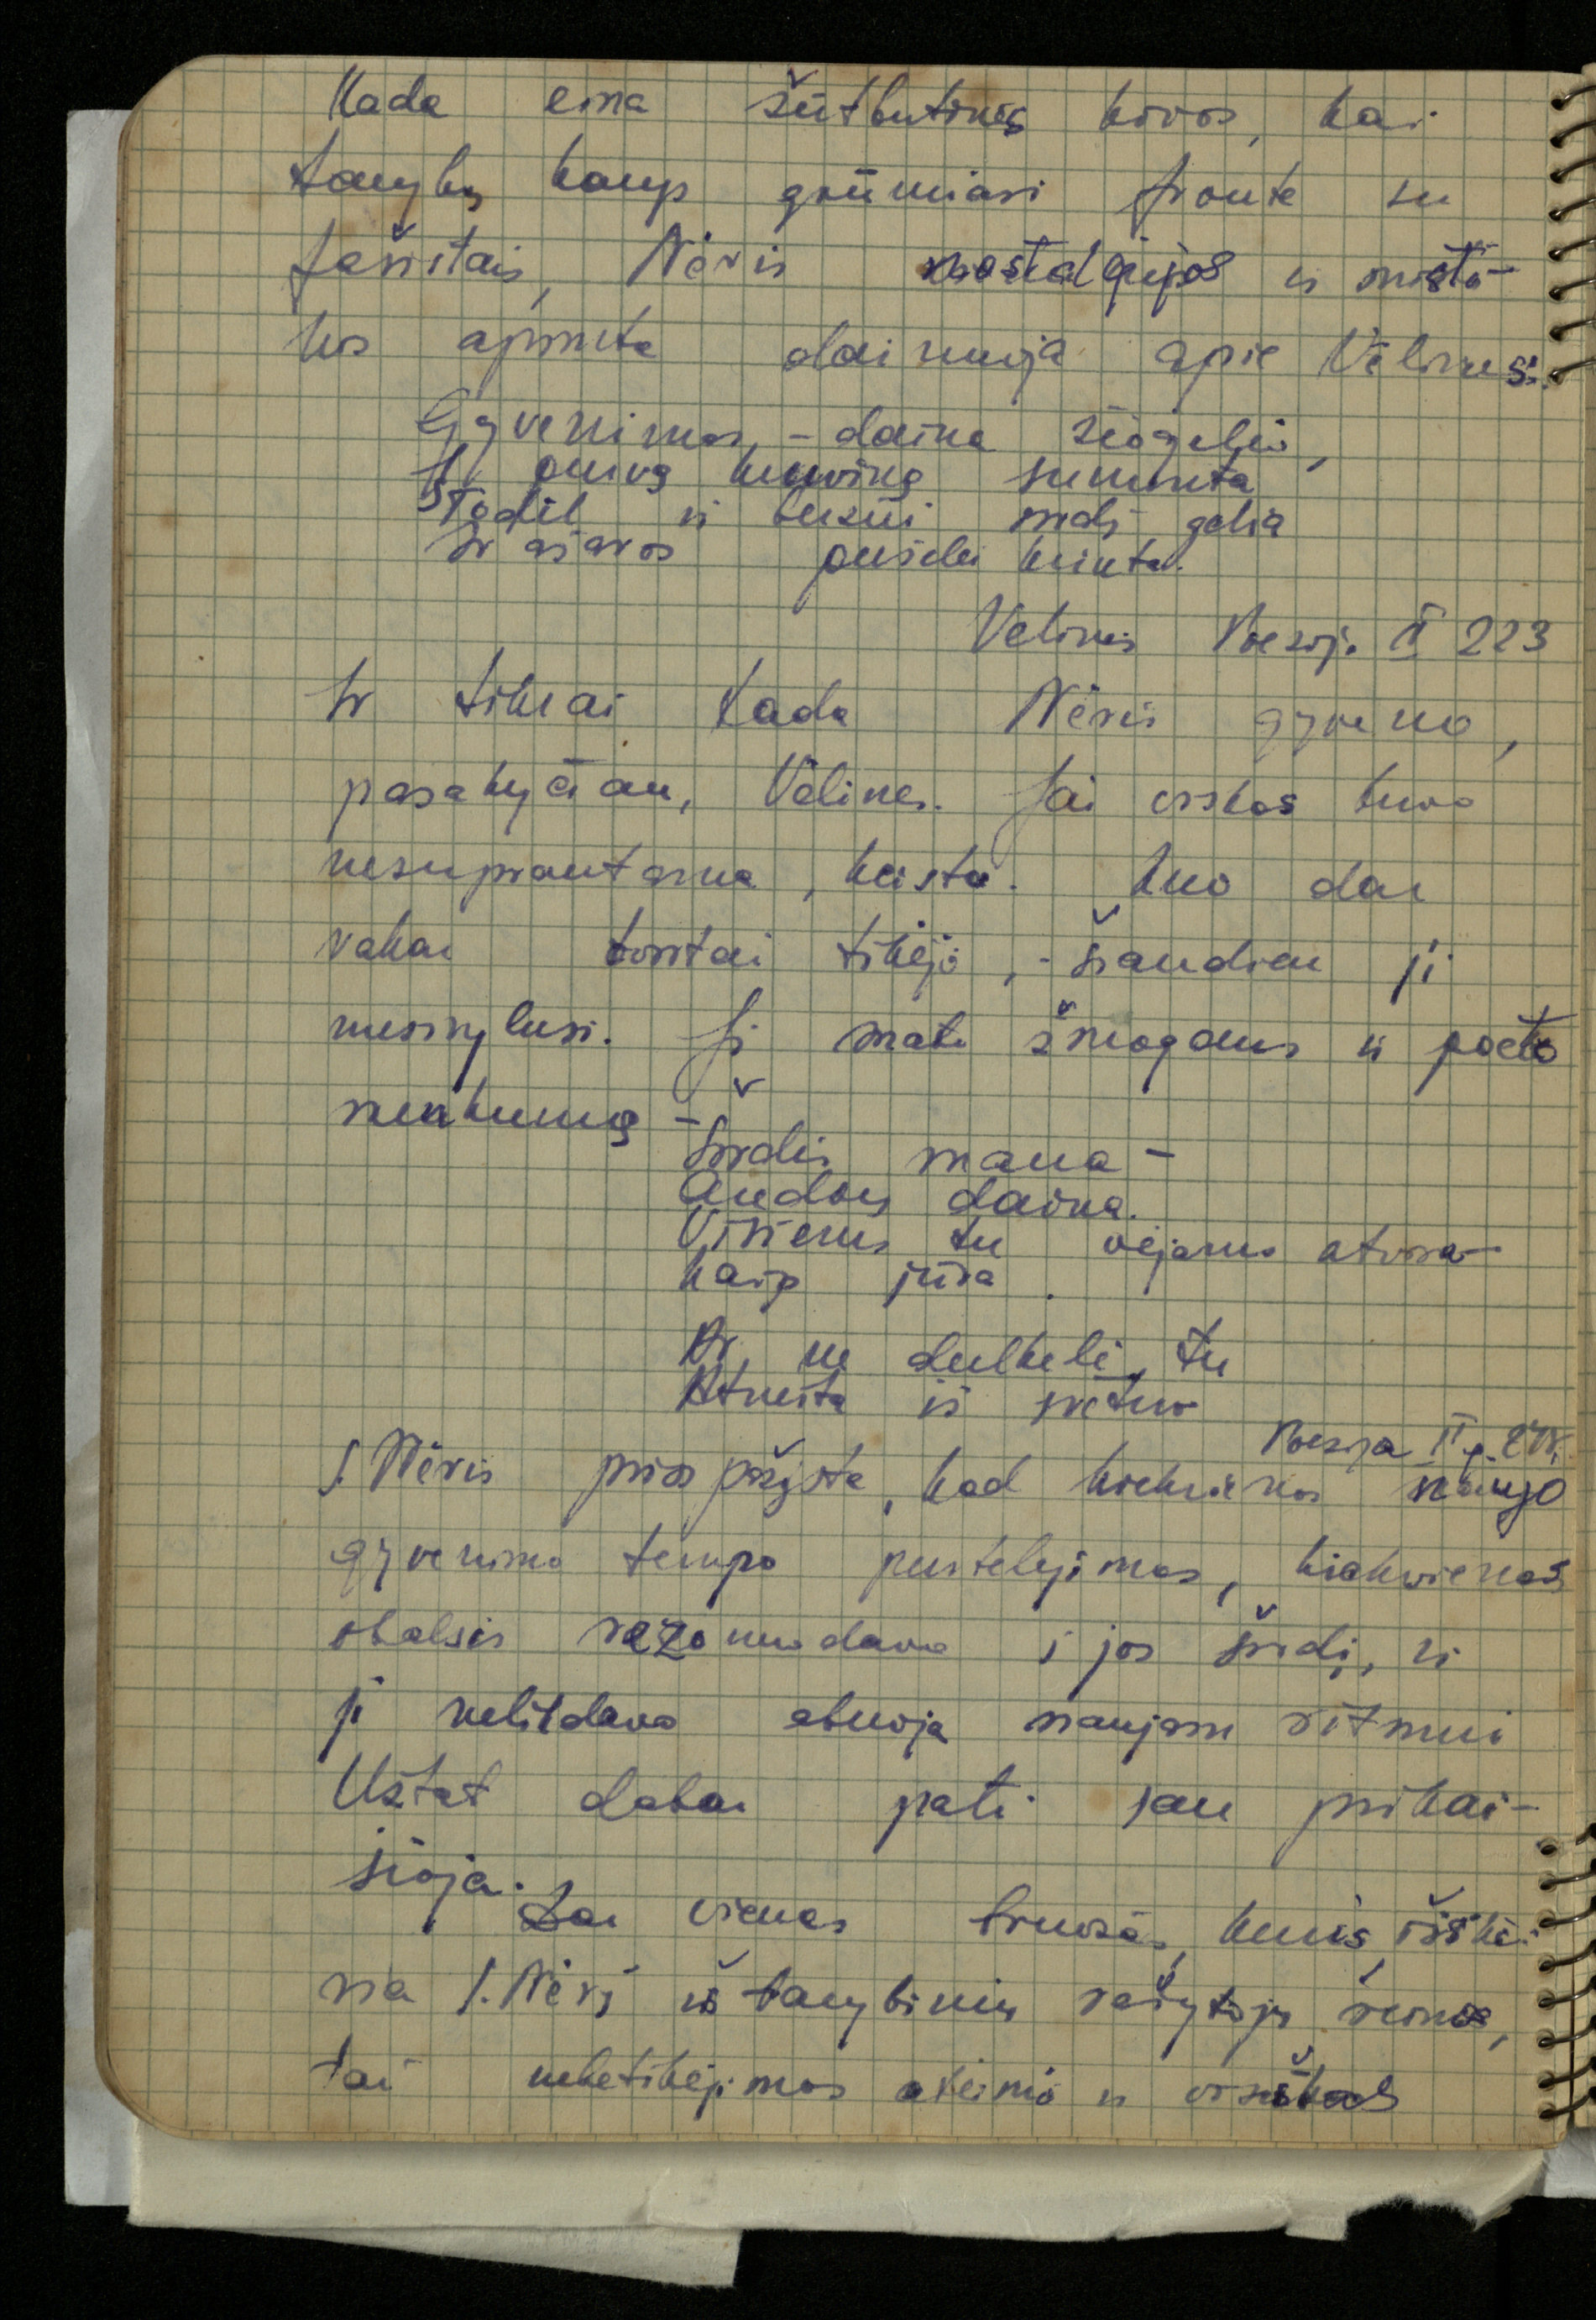 Kada eina žūtbūtinės kovos, kai
tarybų karys grūmiasi fronte su
fašistais, Nėris nostalgijos ir misti-
kos apimta dainuoja apie Vėlines:
Gyvenimas, - daina žiogelio,
Į purvą kruviną suminta
Todėl ir beržui širdį gelia
Ir ašaros pušelei krinta.
Vėlinės Poezija II 223
Ir tikrai tada Nėris gyveno,
pasakyčiau, Vėlines. Jai viskas buvo
nesuprantama, keista. Kuo dar
vakar tvirtai tikėjo, - šiandien ji
nusivylusi. Ji mato žmogaus ir poeto
menkumą -
Širdis mana -
Audrų daina.
Visiems tu vėjams atvira
kaip jūra.
Ar ne dulkelė tu
Atnešta iš svetur
Poezija II p.
S. Nėris prisipažįsta, kad kiekvienas naujo
gyvenimo tempo pustelėjimas, kiekvienas
obalsis rezonuodavo į jos širdį, ir
ji nelikdavo abuoja naujam ritmui
Užtat dabar pati sau prikai-
šioja.
Dar vienas bruožas, kuris išski-
ria S. Nėrį iš tarybinių rašytojų šeimos,
tai nebetikėjimas ateimi ir visiškas